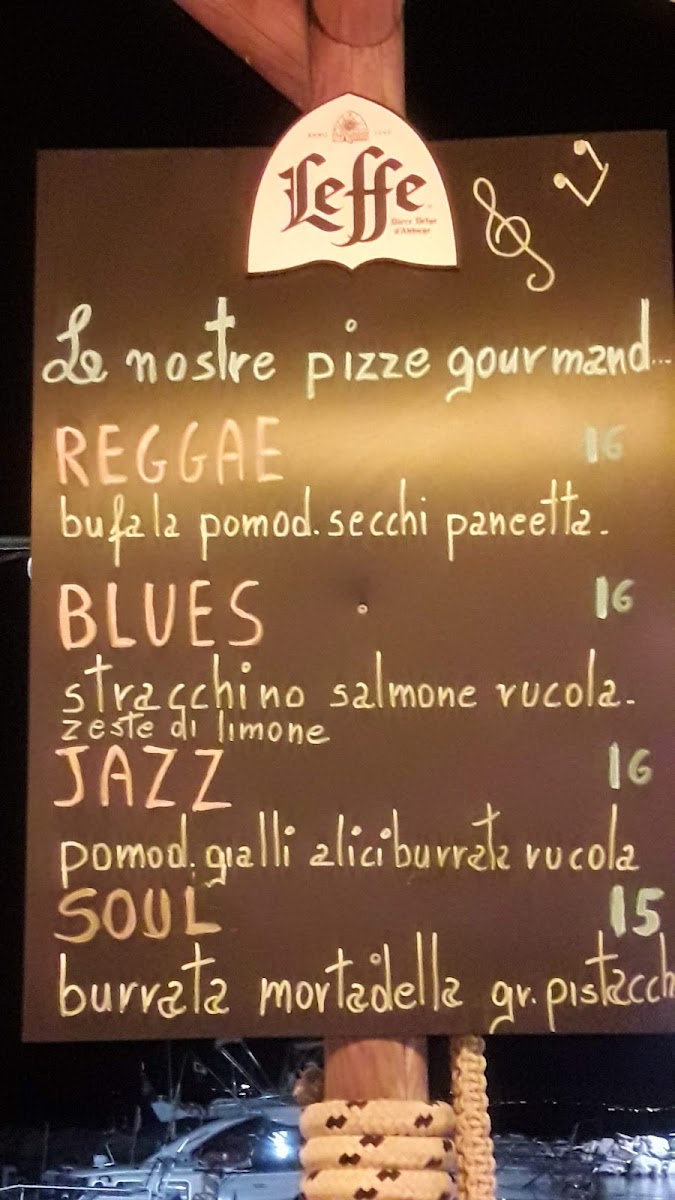 Leffe
Le nostre pizze gourmand...
REGGAE 16
bufala pomod. secchi pancetta.
BLUES 16
stracchino salmone rucola.
zeste di limone
JAZZ 16
pomod. gialli alici burrata rucola
SOUL 15
burrata mortadella gr. pistacch